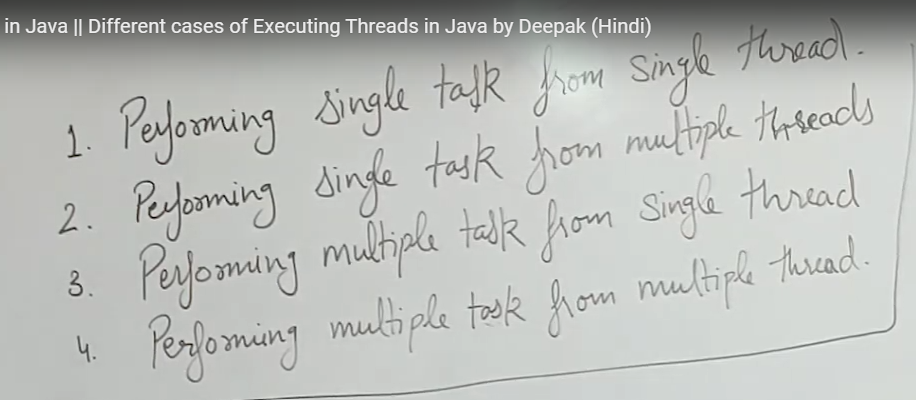 in Java || Different cases of Executing Threads in Java by Deepak (Hindi)
1. Performing single task from single thread.
2. Performing single task from multiple threads
3. Performing multiple task from single thread
4. Performing multiple task from multiple thread.